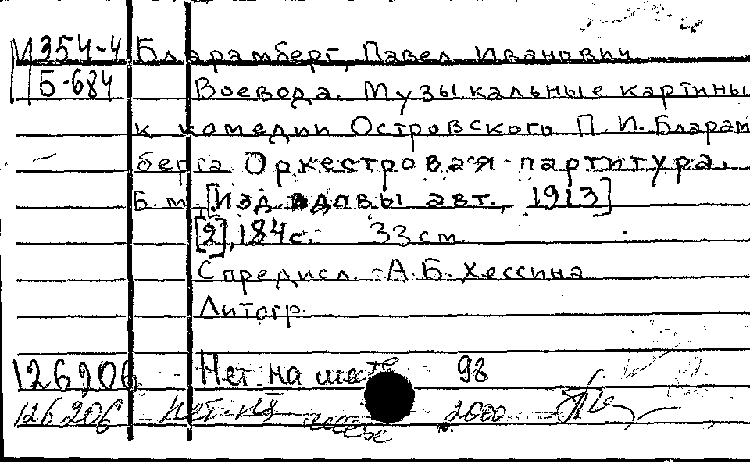 М354-4 Бларамберг, Павел Иванович.
Б-684 Воевода. Музыкальные картины
к комедии Островского П. И. Бларам
берга Оркестровая партитура.
Б. м. [Изд. вдовы авт., 1913]
[2], 184 с. 33 см.
С предисл. А. Б. Хессина
Литогр.
126206 Нет на месте 98
126206 Нет на месте 2000